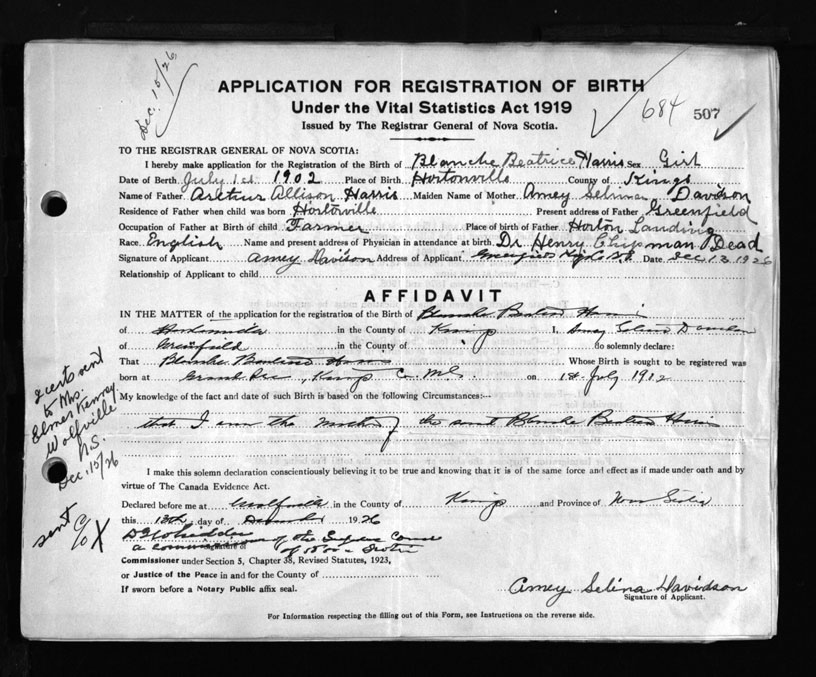 Dec. 15/26
APPLICATION FOR REGISTRATION OF BIRTH
Under the Vital Statistics Act 1919
684 507
Issued by The Registrar General of Nova Scotia.
TO THE REGISTRAR GENERAL OF NOVA SCOTIA:
I hereby make application for the Registration of the Birth of Blanche Beatrice Harris Sex Girl
Date of Birth July 1st 1902 Place of Birth Hortonville County of Kings
Name of Father Arthur Allison Harris Maiden Name of Mother Amey Davidson
Residence of Father when child was born Hortonville Present address of Father Greenfield
Occupation of Father at Birth of child Farmer Place of birth of Father Horton Landing
Race English Name and present address of Physician in attendance at birth Dr Henry Chipman Dead
Signature of Applicant Amey Davison Address of Applicant Greenfield Kings Co N.S. Date Dec 13 1926
Relationship of Applicant to child
AFFIDAVIT
IN THE MATTER of the application for the registration of the Birth of Blanche Harris
of in the County of Kings I, Amey
of Greenfield in the County of do solemnly declare:
That Blanche Harris Whose Birth is sought to be registered was
born at Grand Pre, Kings Co. N.S. on 1st July 1902
My knowledge of the fact and date of such Birth is based on the following Circumstances:--
that I am the mother of the said Blanche Harris
I make this solemn declaration conscientiously believing it to be true and knowing that it is of the same force and effect as if made under oath and by
virtue of The Canada Evidence Act.
Declared before me at Wolfville in the County of Kings and Province of Nova Scotia
this 13th day of December 1926
a commissioner of the Supreme Court
of Nova Scotia
Commissioner under Section 5, Chapter 38, Revised Statutes, 1923,
or Justice of the Peace in and for the County of
If sworn before a Notary Public affix seal.
Amey Selina Davidson
Signature of Applicant.
For Information respecting the filling out of this Form, see Instructions on the reverse side.
2 certs sent
to Mrs.
Elmer Kenney
Wolfville
N.S.
Dec. 15/26
sent c/o X